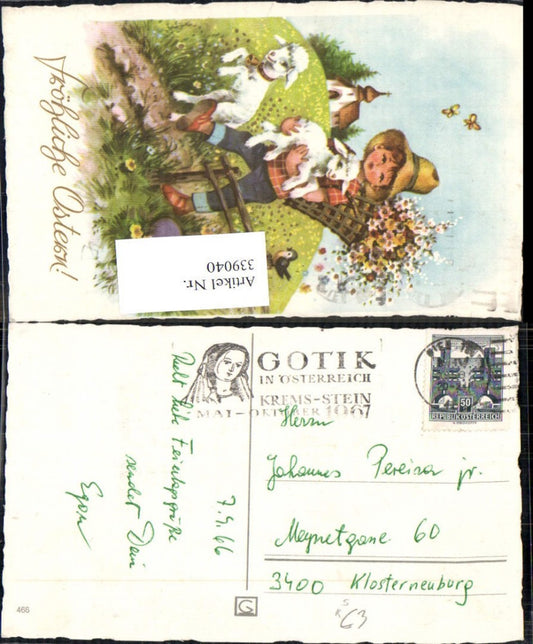 Fröhliche Ostern!
Artikel Nr.
339040
GOTIK
IN ÖSTERREICH
KREMS-STEIN
MAI-OKTOBER 1967
50
REPUBLIK ÖSTERREICH
Herrn
Johannes Pereira jr.
60
3400 Klosterneuburg
Recht liebe
sendet Dein
Egon
468
G